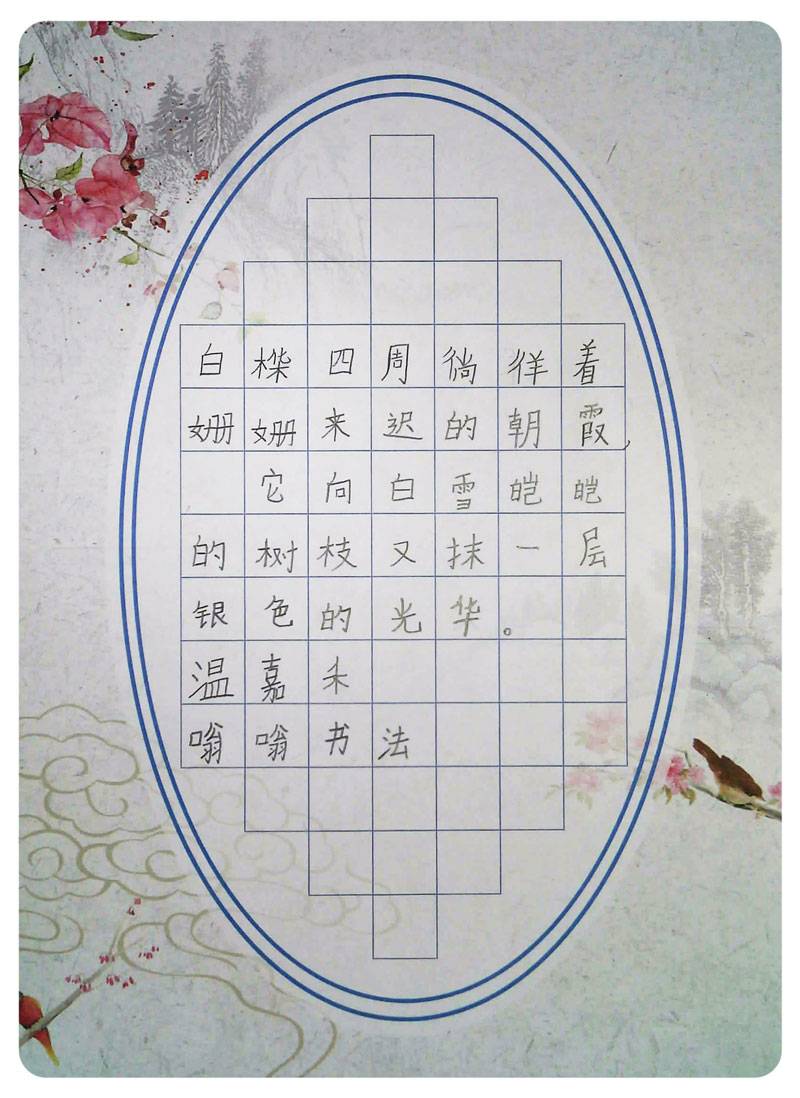 白桦四周徜徉着
姗姗来迟的朝霞，
它向白雪皑皑
的树枝又抹一层
银色的光华。
温嘉禾
嗡嗡书法